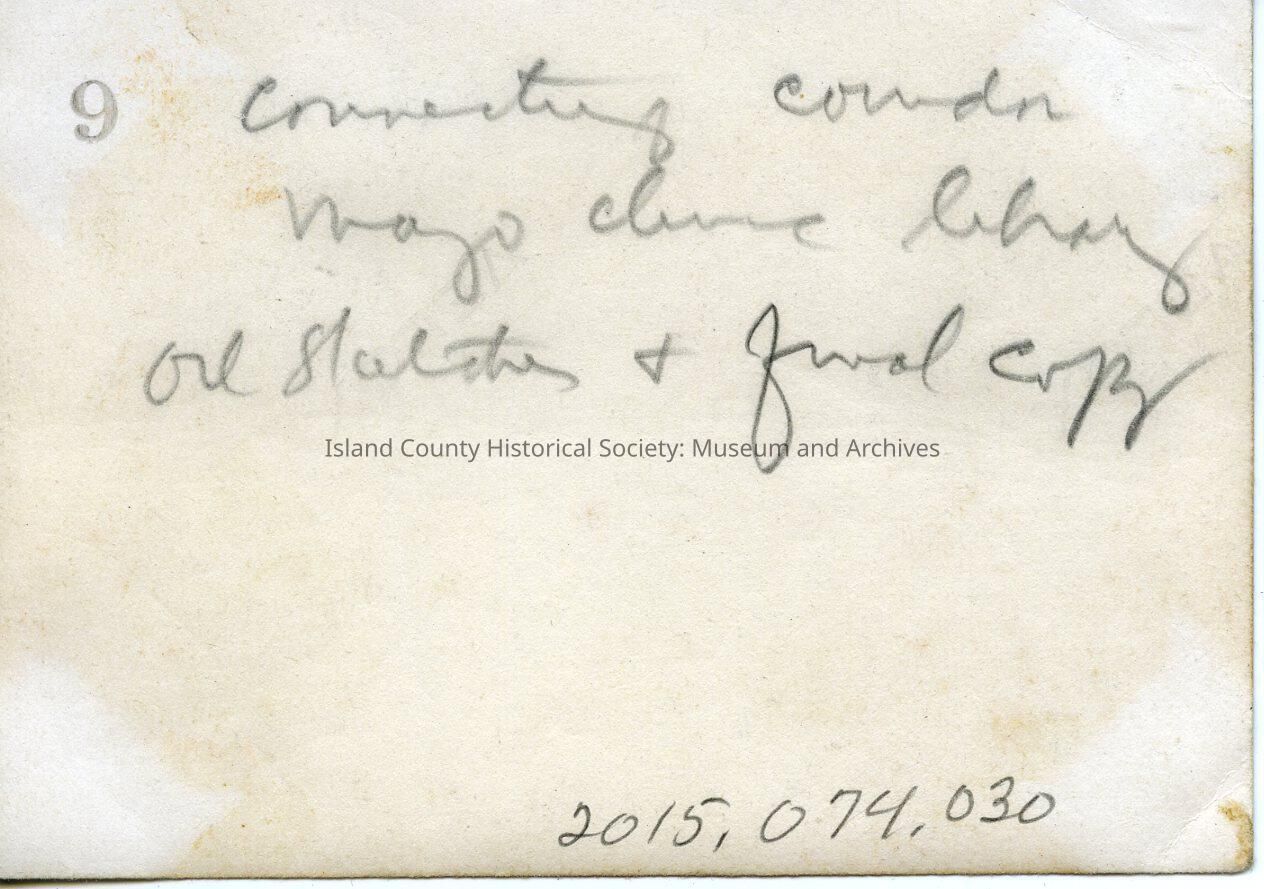 9 Connecting corridor
Mayo clinic library
Oil Sketches + final copy
Island County Historical Society: Museum and Archives
2015.074.030